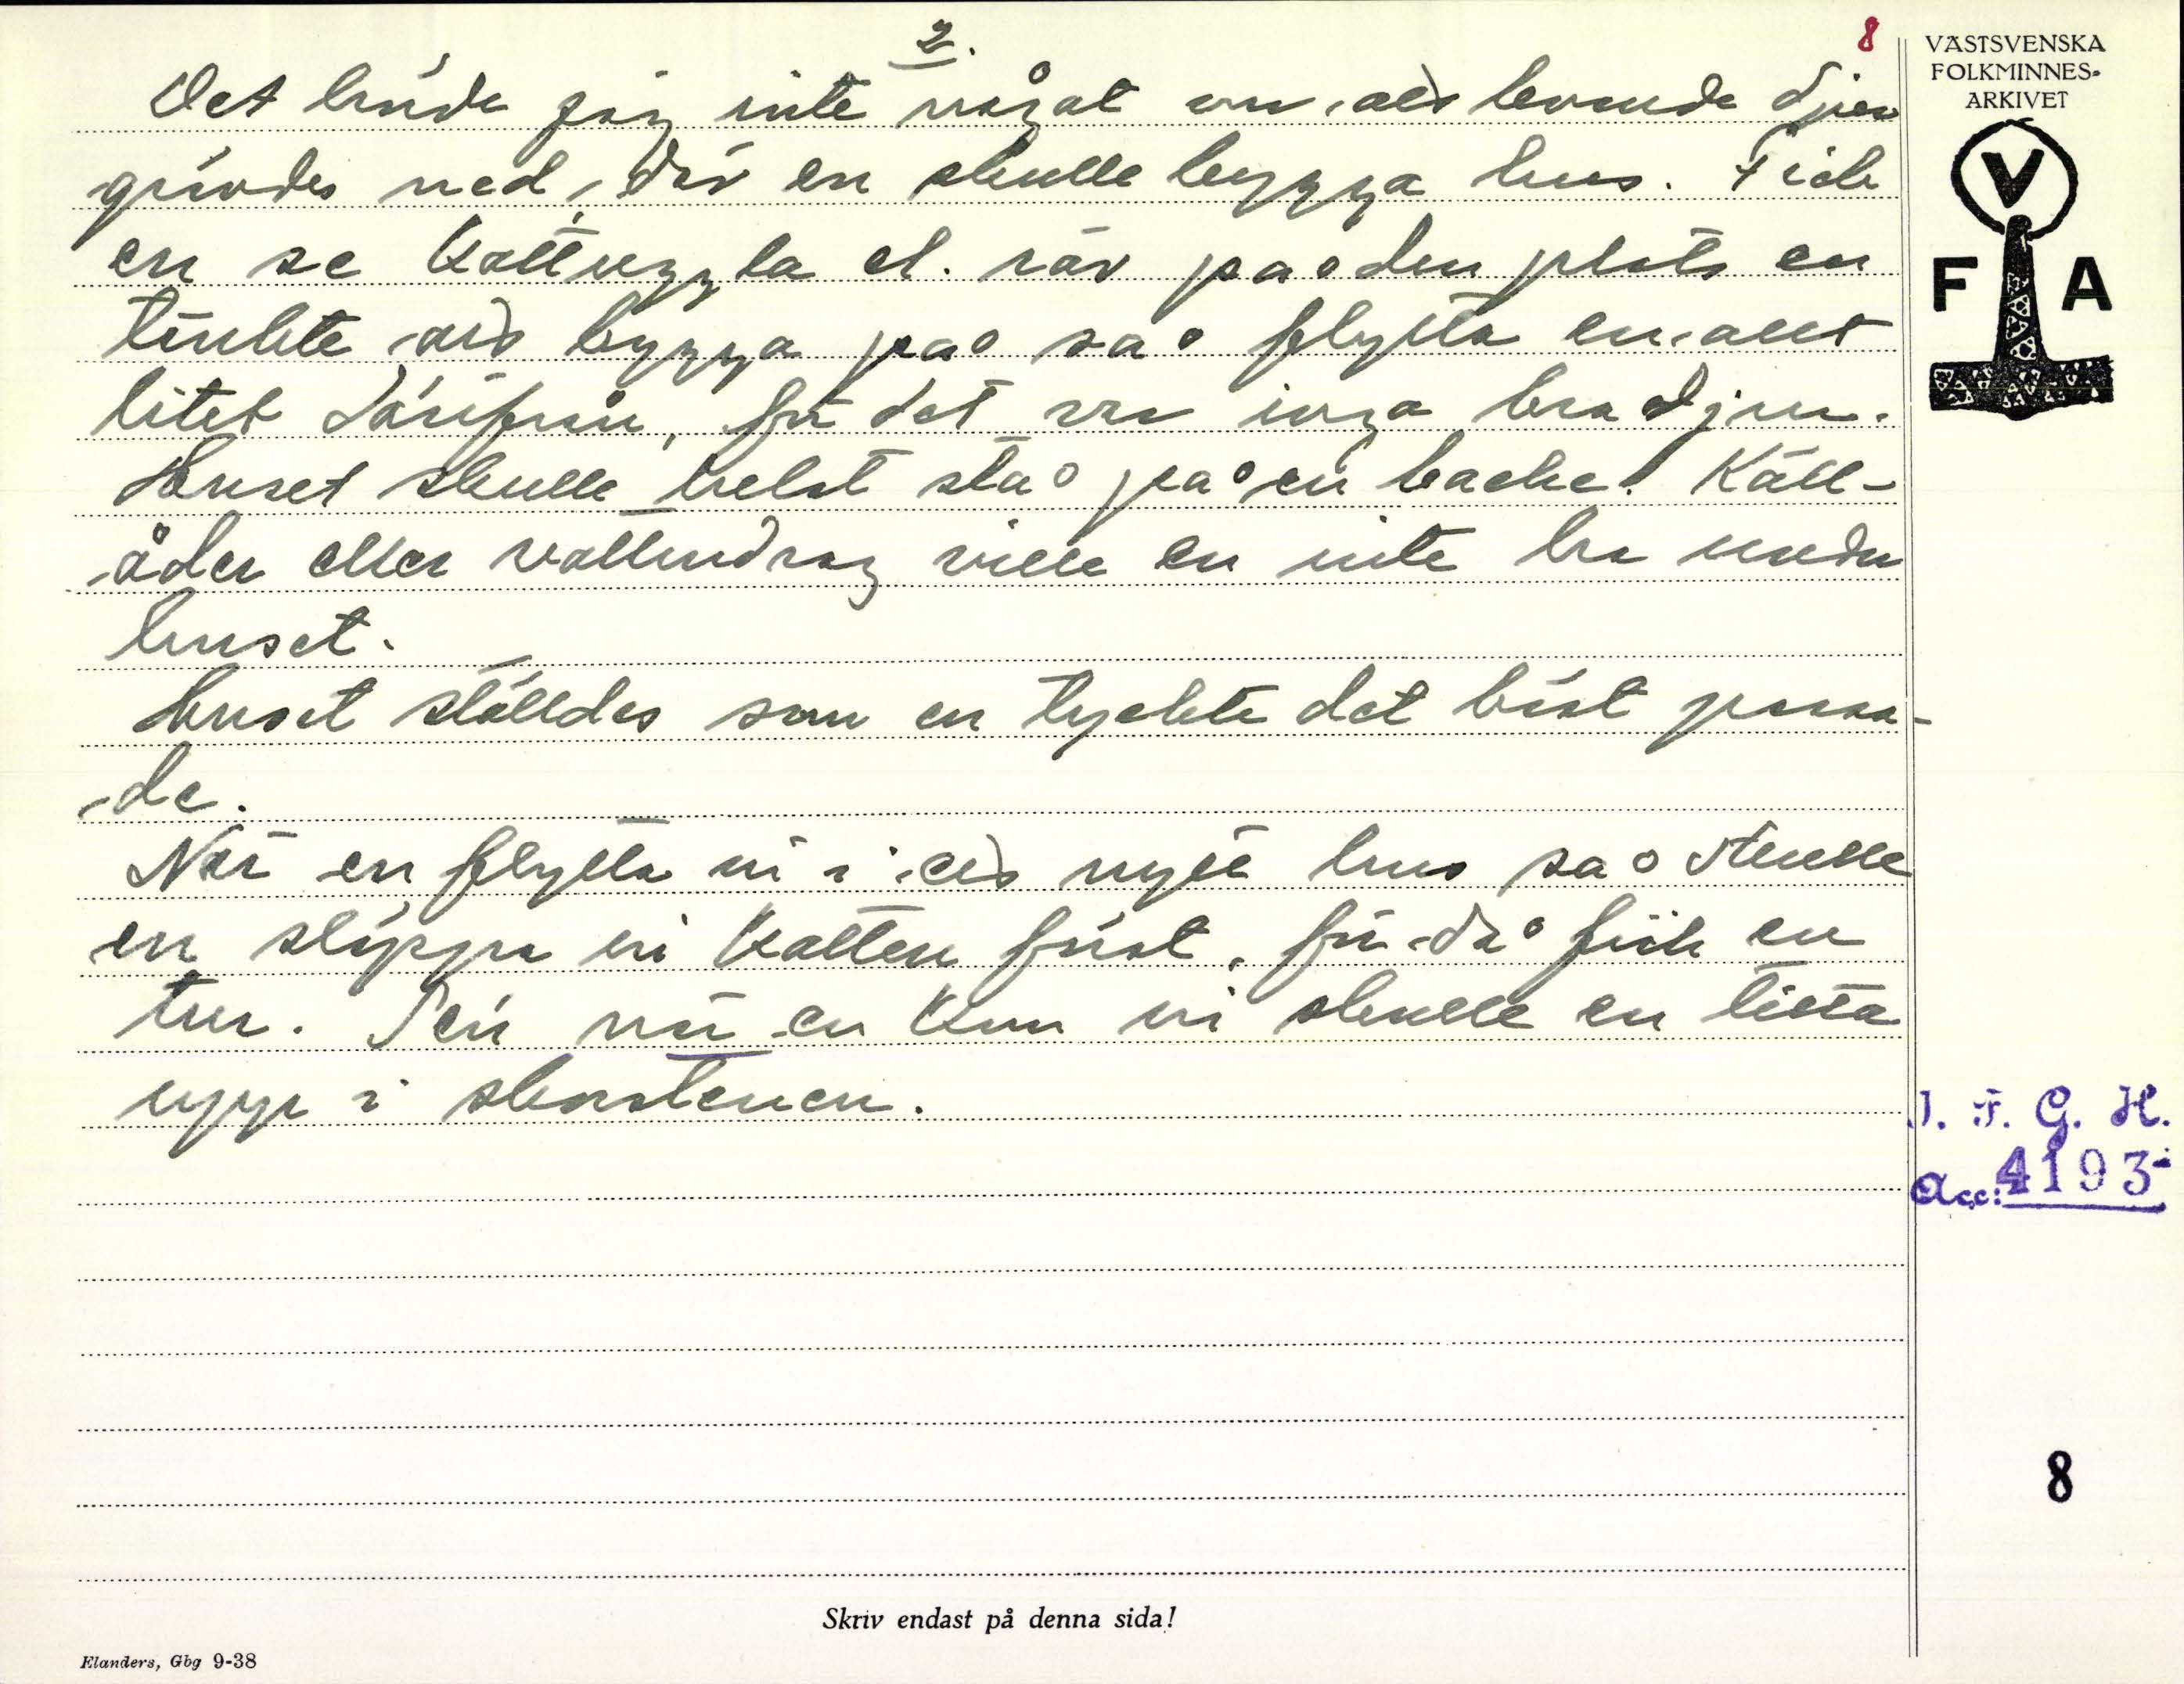 2.
8
VÄSTSVENSKA
FOLKMINNES-
ARKIVET
V
F A
Det hörde jag inte något om att levande djur
grävdes ned, där en skulle bygga hus. Fick
en se Kattuggla el. räv på den plats en
tänkte att bygga på så flytta en allt
litet därifrån, för det var inga bra djur.
Huset skulle helst stå på en backe. Käll-
åder eller vattendrag ville en inte ha under
huset.
Huset ställdes som en tyckte det bäst passa-
de.
När en flytta in i ett nytt hus så skulle
en släppa in Katten först, för då fick en
tur. Sen när en kom in skulle en titta
upp i skorstenen.
I. F. G. H.
acc: 4193
8
Skriv endast på denna sida!
Elanders, Gbg 9-38